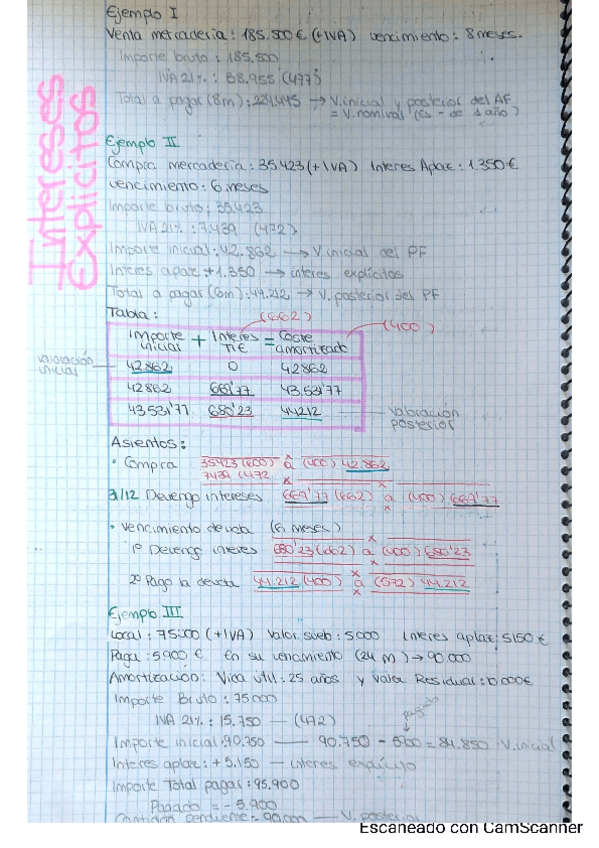 Intereses Explicitos
Ejemplo I
Venta mercaderia: 185.500€ (+IVA) vencimiento: 8 meses.
Importe bruto: 185.500
IVA 21%: 38.955 (477)
Total a pagar (8m): 224.445 → V.inicial y posterior del AF
= V.nominal (Es - de 1 año)
Ejemplo II
Compra mercaderia: 35.423 (+IVA) Interes Aplaz: 1.350€
vencimiento: 6 meses
Importe bruto: 35.423
IVA 21%: 7.439 (472)
Importe inicial: 42.862 → V. inicial del PF
Interes aplaz: +1.350 → interes explícitos
Total a pagar (6m): 44.212 → V. posterior del PF
Tabla: (662) (400)
Importe inicial + Interes TIE = Coste amortizado
valoración inicial
42.862 0 42862
42862 669'77 43.531'77
43.531'77 680'23 44212
valoración posterior
Asientos:
• Compra 35423 (600) a (400) 42.862
7439 (472
31/12 Devengo intereses 669'77 (662) a (400) 669'77
• Vencimiento deuda (6 meses)
1º Devengo interes 680'23 (662) a (400) 680'23
2º Pago la deuda 44.212 (400) a (572) 44.212
Ejemplo III
Local: 75000 (+IVA) Valor sueb: 5000 Interes aplaz: 5150€
Paga: 5900€ En su vencimiento (24 m) → 90.000
Amortización: Vida útil: 25 años y valor Residual: 10.000€
Importe Bruto: 75000
IVA 21%: 15.750 — (472)
Importe inicial: 90.750 — 90.750 - 5900 = 84.850 V.inicial
Interes aplaz: +5.150 — interes explícito
Importe Total pagar: 95.900
Pagado = - 5.900
Cantidad pendiente = 90.000 — V. posterior
Escaneado con CamScanner